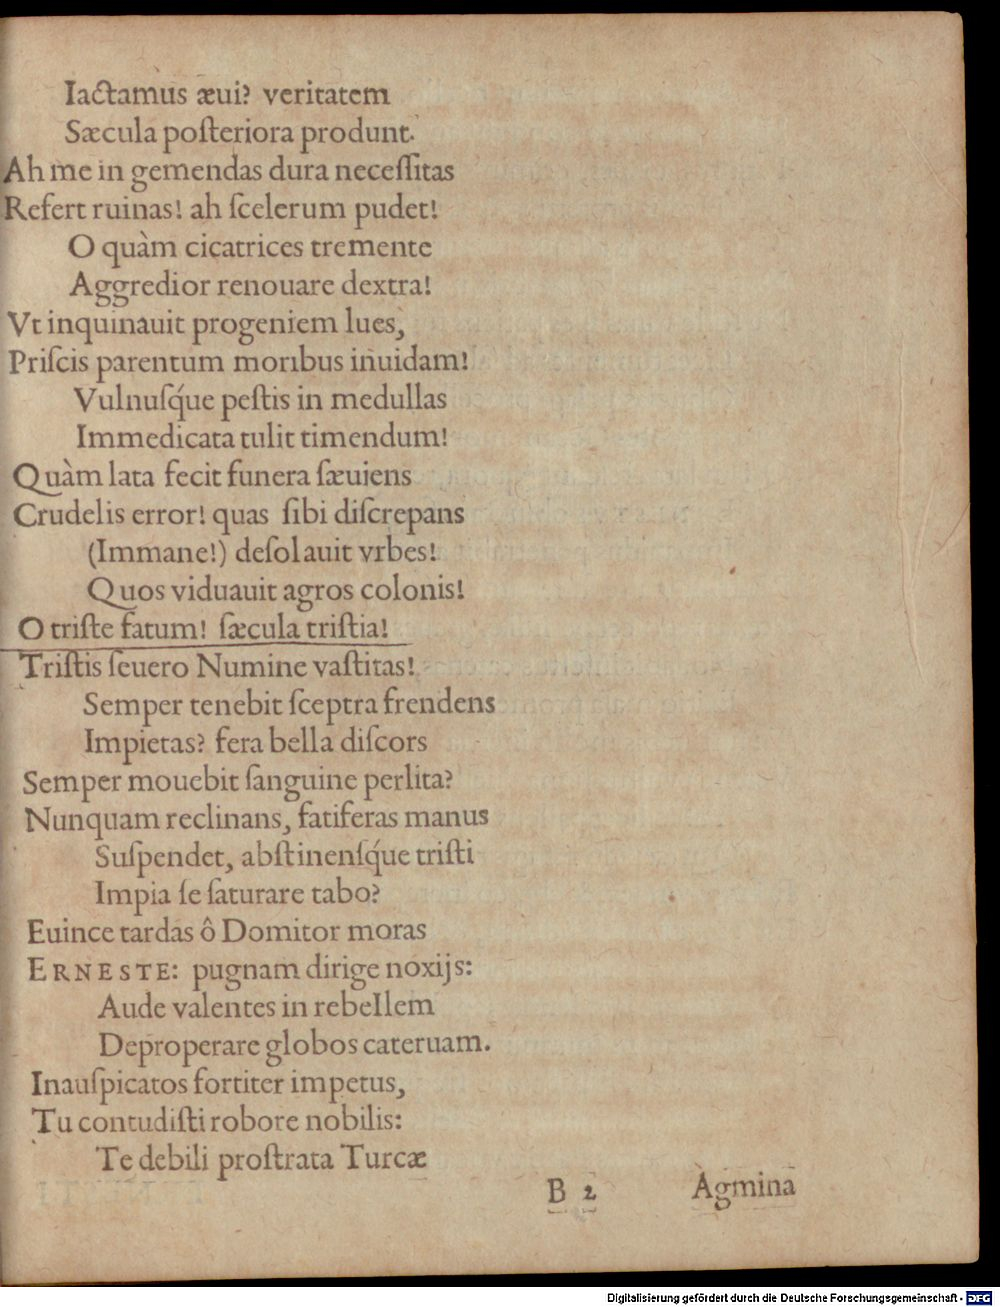 Iactamus æui? veritatem
Sæcula poſteriora produnt.
Ah me in gemendas dura neceſſitas
Refert ruinas! ah ſcelerum pudet!
O quàm cicatrices tremente
Aggredior renouare dextra!
Vt inquinauit progeniem lues,
Priſcis parentum moribus inuidam!
Vulnuſq́ue peſtis in medullas
Immedicata tulit timendum!
Quàm lata fecit funera ſæuiens
Crudelis error! quas ſibi diſcrepans
(Immane!) deſolauit vrbes!
Quos viduauit agros colonis!
O triſte fatum! ſæcula triſtia!
Triſtis ſeuero Numine vaſtitas!
Semper tenebit ſceptra frendens
Impietas? fera bella diſcors
Semper mouebit ſanguine perlita?
Nunquam reclinans, fatiferas manus
Suſpendet, abſtinenſq́ue triſti
Impia ſe ſaturare tabo?
Euince tardas ô Domitor moras
ERNESTE: pugnam dirige noxijs:
Aude valentes in rebellem
Deproperare globos cateruam.
Inauſpicatos fortiter impetus,
Tu contudiſti robore nobilis:
Te debili proſtrata Turcæ
B 2 Agmina
Digitalisierung gefördert durch die Deutsche Forschungsgemeinschaft - DFG